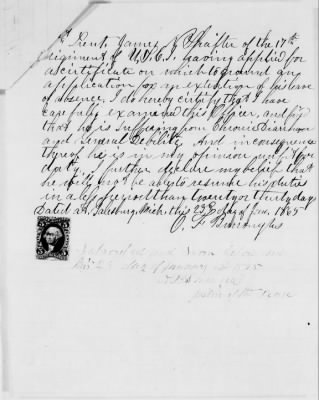 Lieut. James N Shafter of the 17th
Regiment of U.S.C.I. having applied for
a certificate on which to ground an
application for an extention of his leave
of absence. I do hereby certify that I have
carefully examined this officer, and find
that he is suffering from Chronic Diarrhoea
and General Debility, And in consequence
thereof he is in my opinion unfit for
duty. I further declare my belief that
he will not be able to resume his duties
in a less period than twenty or thirty days
Dated at Galesburg Mich. this 23d day of Jan. 1865
O. F. Burroughs
Subscribed and Sworn before me
this 23 day of January 1865
Justice of the Peace